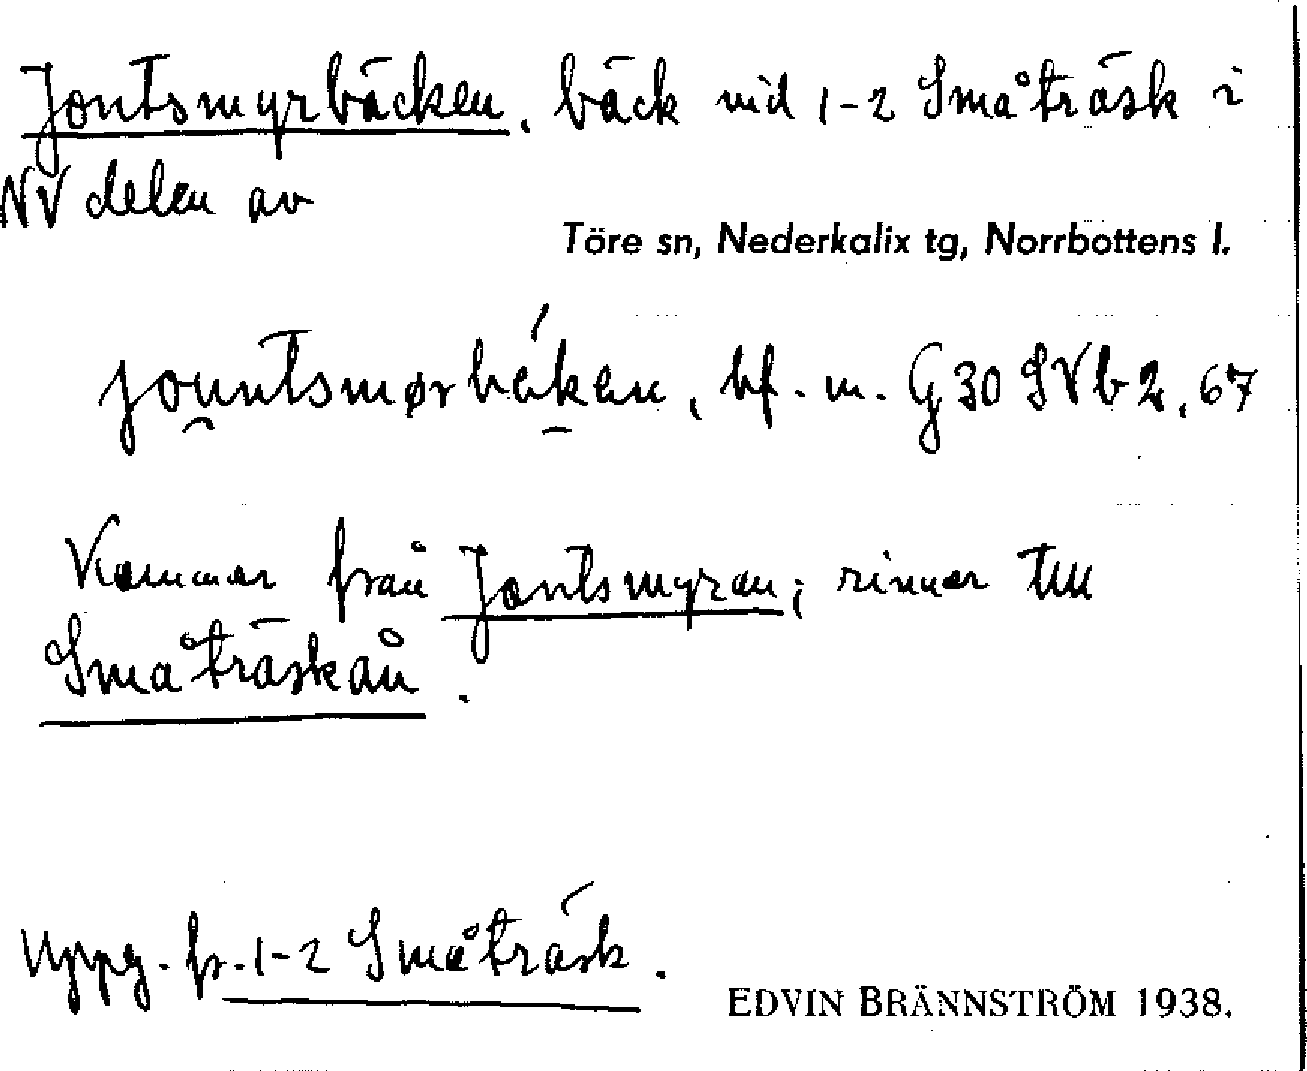 Jontsmyrbäcken, bäck vid 1-2 Småträsk i
NV delen av
Töre sn, Nederkalix tg, Norrbottens l.
bf. m. G 30 SV b 2, 67
Kommer från Jontsmyran; rinner till
Småträskån.
Uppg. fr. 1-2 Småträsk.
EDVIN BRÄNNSTRÖM 1938.